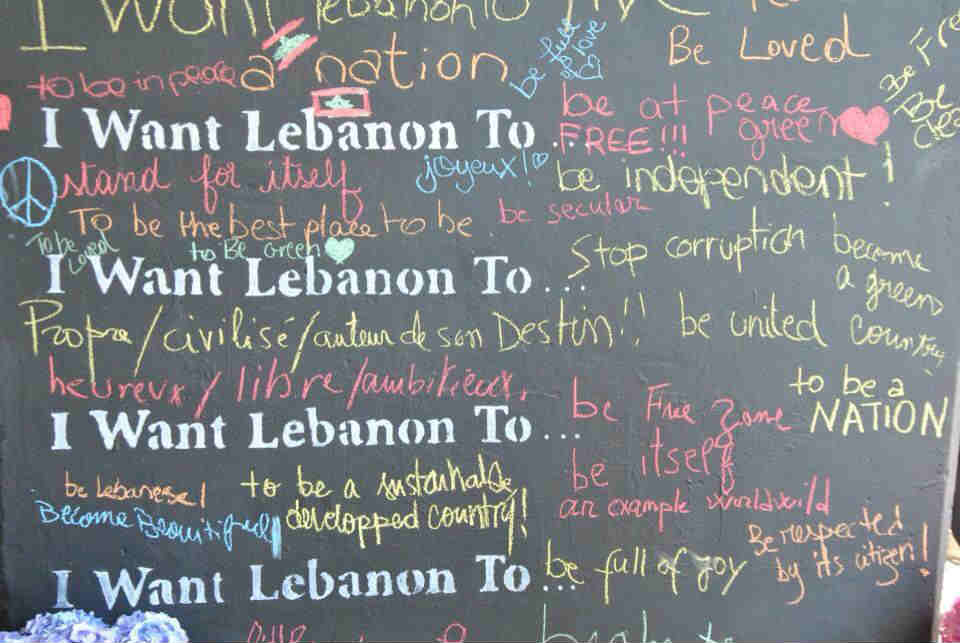 I Want lebanon to
Be Loved
a nation
to be in peace
be full of love
Be Free
I Want Lebanon To ...
be at peace
FREE!!!
green
stand for itself
joyeux!
be independent!
To be the best place to be.
be secular
to Be Green
I Want Lebanon To ...
Stop corruption
become
a green
country
Propre/civilisé/auteur de son Destin!!
be united
heureux/libre/ambitieux.
to be a
NATION
I Want Lebanon To ...
be Free Zone
be itself
be lebanese!
to be a sustainable
developped country!
Become Beautiful
an example worldwild
Be respected
by its citizen!
I Want Lebanon To ...
be full of joy